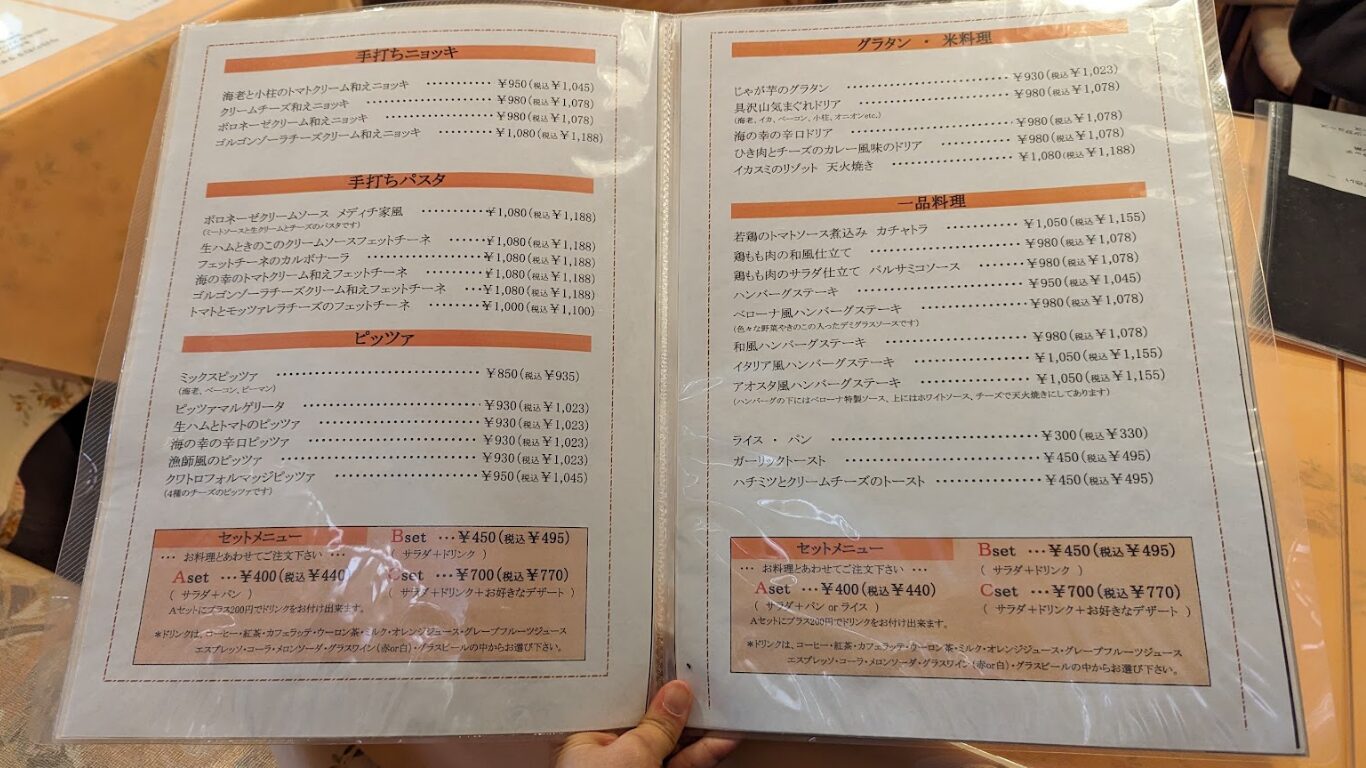 手打ちニョッキ
海老と小柱のトマトクリーム和えニョッキ ………… ￥950(税込￥1,045)
クリームチーズ和えニョッキ ………… ￥980(税込￥1,078)
ボロネーゼクリーム和えニョッキ ………… ￥980(税込￥1,078)
ゴルゴンゾーラチーズクリーム和えニョッキ ………… ￥1,080(税込￥1,188)
手打ちパスタ
ボロネーゼクリームソース メディチ家風 ………… ￥1,080(税込￥1,188)
(ミートソースと生クリームとチーズのパスタです)
生ハムときのこのクリームソースフェットチーネ ……￥1,080(税込￥1,188)
フェットチーネのカルボナーラ ………… ￥1,080(税込￥1,188)
海の幸のトマトクリーム和えフェットチーネ ………… ￥1,080(税込￥1,188)
ゴルゴンゾーラチーズクリーム和えフェットチーネ …￥1,080(税込￥1,188)
トマトとモッツァレラチーズのフェットチーネ ………… ￥1,000(税込￥1,100)
ピッツァ
ミックスピッツァ ………… ￥850(税込￥935)
(海老、ベーコン、ピーマン)
ピッツァマルゲリータ ………… ￥930(税込￥1,023)
生ハムとトマトのピッツァ ………… ￥930(税込￥1,023)
海の幸の辛口ピッツァ ………… ￥930(税込￥1,023)
漁師風のピッツァ ………… ￥930(税込￥1,023)
クワトロフォルマッジピッツァ ………… ￥950(税込￥1,045)
(4種のチーズのピッツァです)
セットメニュー
… お料理とあわせてご注文下さい …
Aset …￥400(税込￥440)
( サラダ＋パン )
Aセットにプラス200円でドリンクをお付け出来ます。
Bset …￥450(税込￥495)
( サラダ＋ドリンク )
Cset …￥700(税込￥770)
( サラダ＋ドリンク＋お好きなデザート )
＊ドリンクは、コーヒー・紅茶・カフェラッテ・ウーロン茶・ミルク・オレンジジュース・グレープフルーツジュース
エスプレッソ・コーラ・メロンソーダ・グラスワイン(赤or白)・グラスビールの中からお選び下さい。
グラタン ・ 米料理
じゃが芋のグラタン ………… ￥930(税込￥1,023)
具沢山気まぐれドリア ………… ￥980(税込￥1,078)
(海老、イカ、ベーコン、小柱、オニオンetc.)
海の幸の辛口ドリア ………… ￥980(税込￥1,078)
ひき肉とチーズのカレー風味のドリア ………… ￥980(税込￥1,078)
イカスミのリゾット 天火焼き ………… ￥1,080(税込￥1,188)
一品料理
若鶏のトマトソース煮込み カチャトラ ………… ￥1,050(税込￥1,155)
鶏もも肉の和風仕立て ………… ￥980(税込￥1,078)
鶏もも肉のサラダ仕立て バルサミコソース ………… ￥980(税込￥1,078)
ハンバーグステーキ ………… ￥950(税込￥1,045)
ベローナ風ハンバーグステーキ ………… ￥980(税込￥1,078)
(色々な野菜やきのこの入ったデミグラスソースです)
和風ハンバーグステーキ ………… ￥980(税込￥1,078)
イタリア風ハンバーグステーキ ………… ￥1,050(税込￥1,155)
アオスタ風ハンバーグステーキ ………… ￥1,050(税込￥1,155)
(ハンバーグの下にはベローナ特製ソース、上にはホワイトソース、チーズで天火焼きにしてあります)
ライス ・ パン ………… ￥300(税込￥330)
ガーリックトースト ………… ￥450(税込￥495)
ハチミツとクリームチーズのトースト ………… ￥450(税込￥495)
セットメニュー
… お料理とあわせてご注文下さい …
Aset …￥400(税込￥440)
( サラダ＋パン or ライス )
Aセットにプラス200円でドリンクをお付け出来ます。
Bset …￥450(税込￥495)
( サラダ＋ドリンク )
Cset …￥700(税込￥770)
( サラダ＋ドリンク＋お好きなデザート )
＊ドリンクは、コーヒー・紅茶・カフェラッテ・ウーロン茶・ミルク・オレンジジュース・グレープフルーツジュース
エスプレッソ・コーラ・メロンソーダ・グラスワイン(赤or白)・グラスビールの中からお選び下さい。